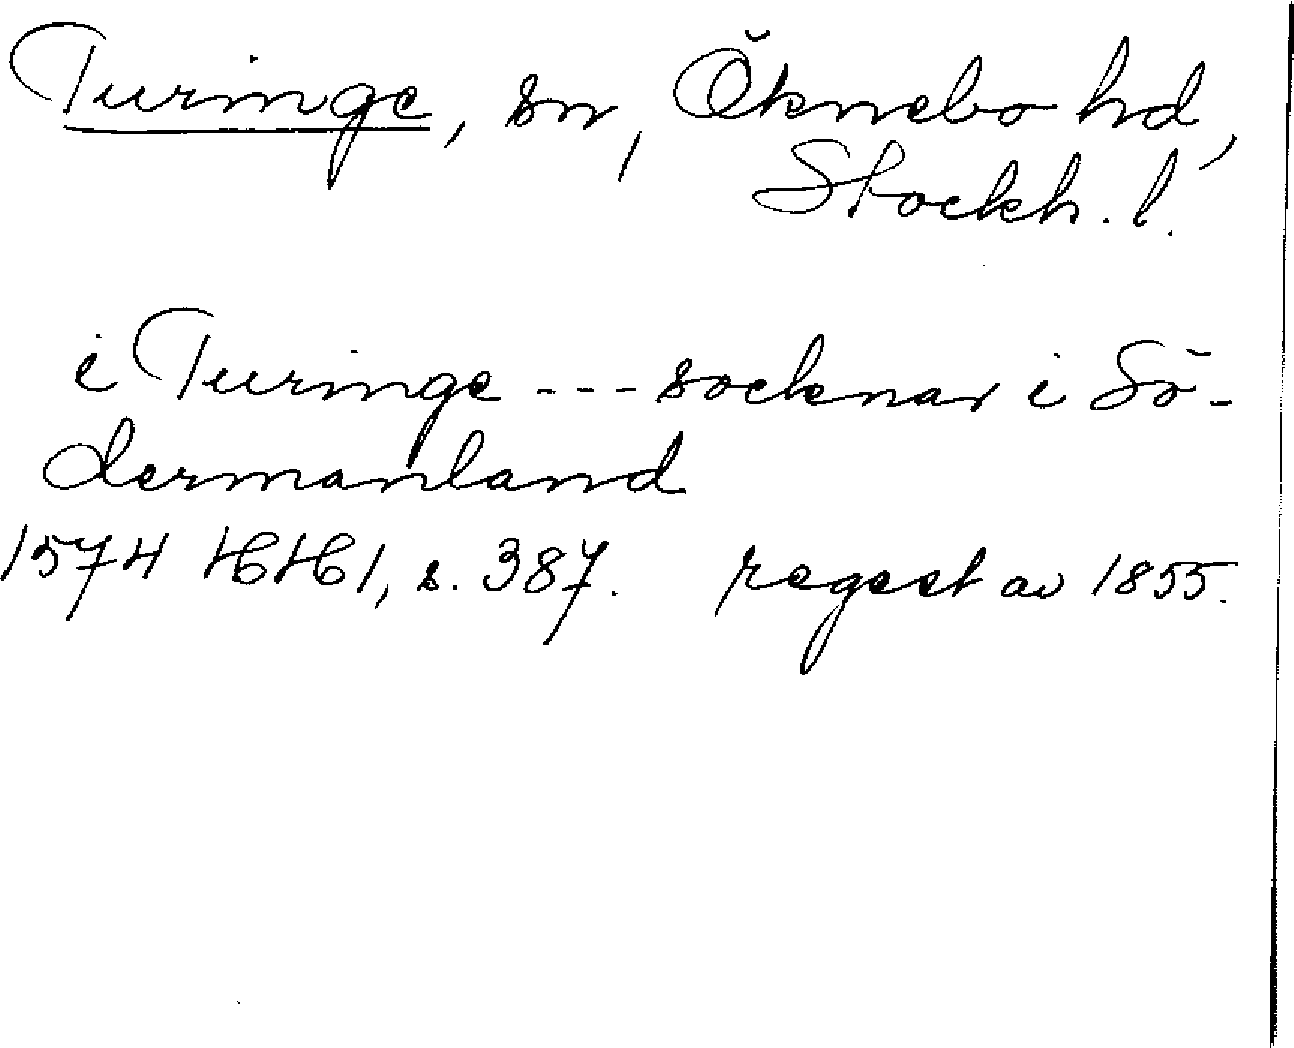 Turinge, sn, Öknebo hd,
Stockh. l.
i Turinge --- socknar i Sö-
dermanland
1574 HH 1, s. 387. regest av 1855.